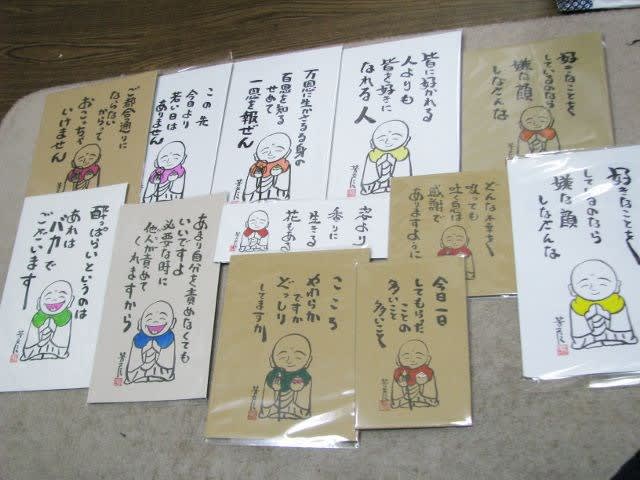 ご都合通りに
ならない
からって
おこっちゃ
いけません
この先
今日より
若い日は
ありません
万恩に生かさるる身の
百恩を知る
せめて
一恩を報ぜん
皆に好かれる
人よりも
皆を好きに
なれる人
好きなことを
しているのなら
嫌な顔
しなさんな
酔っぱらいというのは
あれは
バカで
ございます
あまり自分を責めなくても
いいですよ
必要な時に
他人が責めて
くれますから
容より
香りに
生きる
花もある
どんな不幸を
吸っても
吐く息は
感謝で
ありますように
好きなことを
しているのなら
嫌な顔
しなさんな
こころ
やわらか
ですか
どっしり
してますか
今日一日
してもらった
ことの
多いこと
多いこと